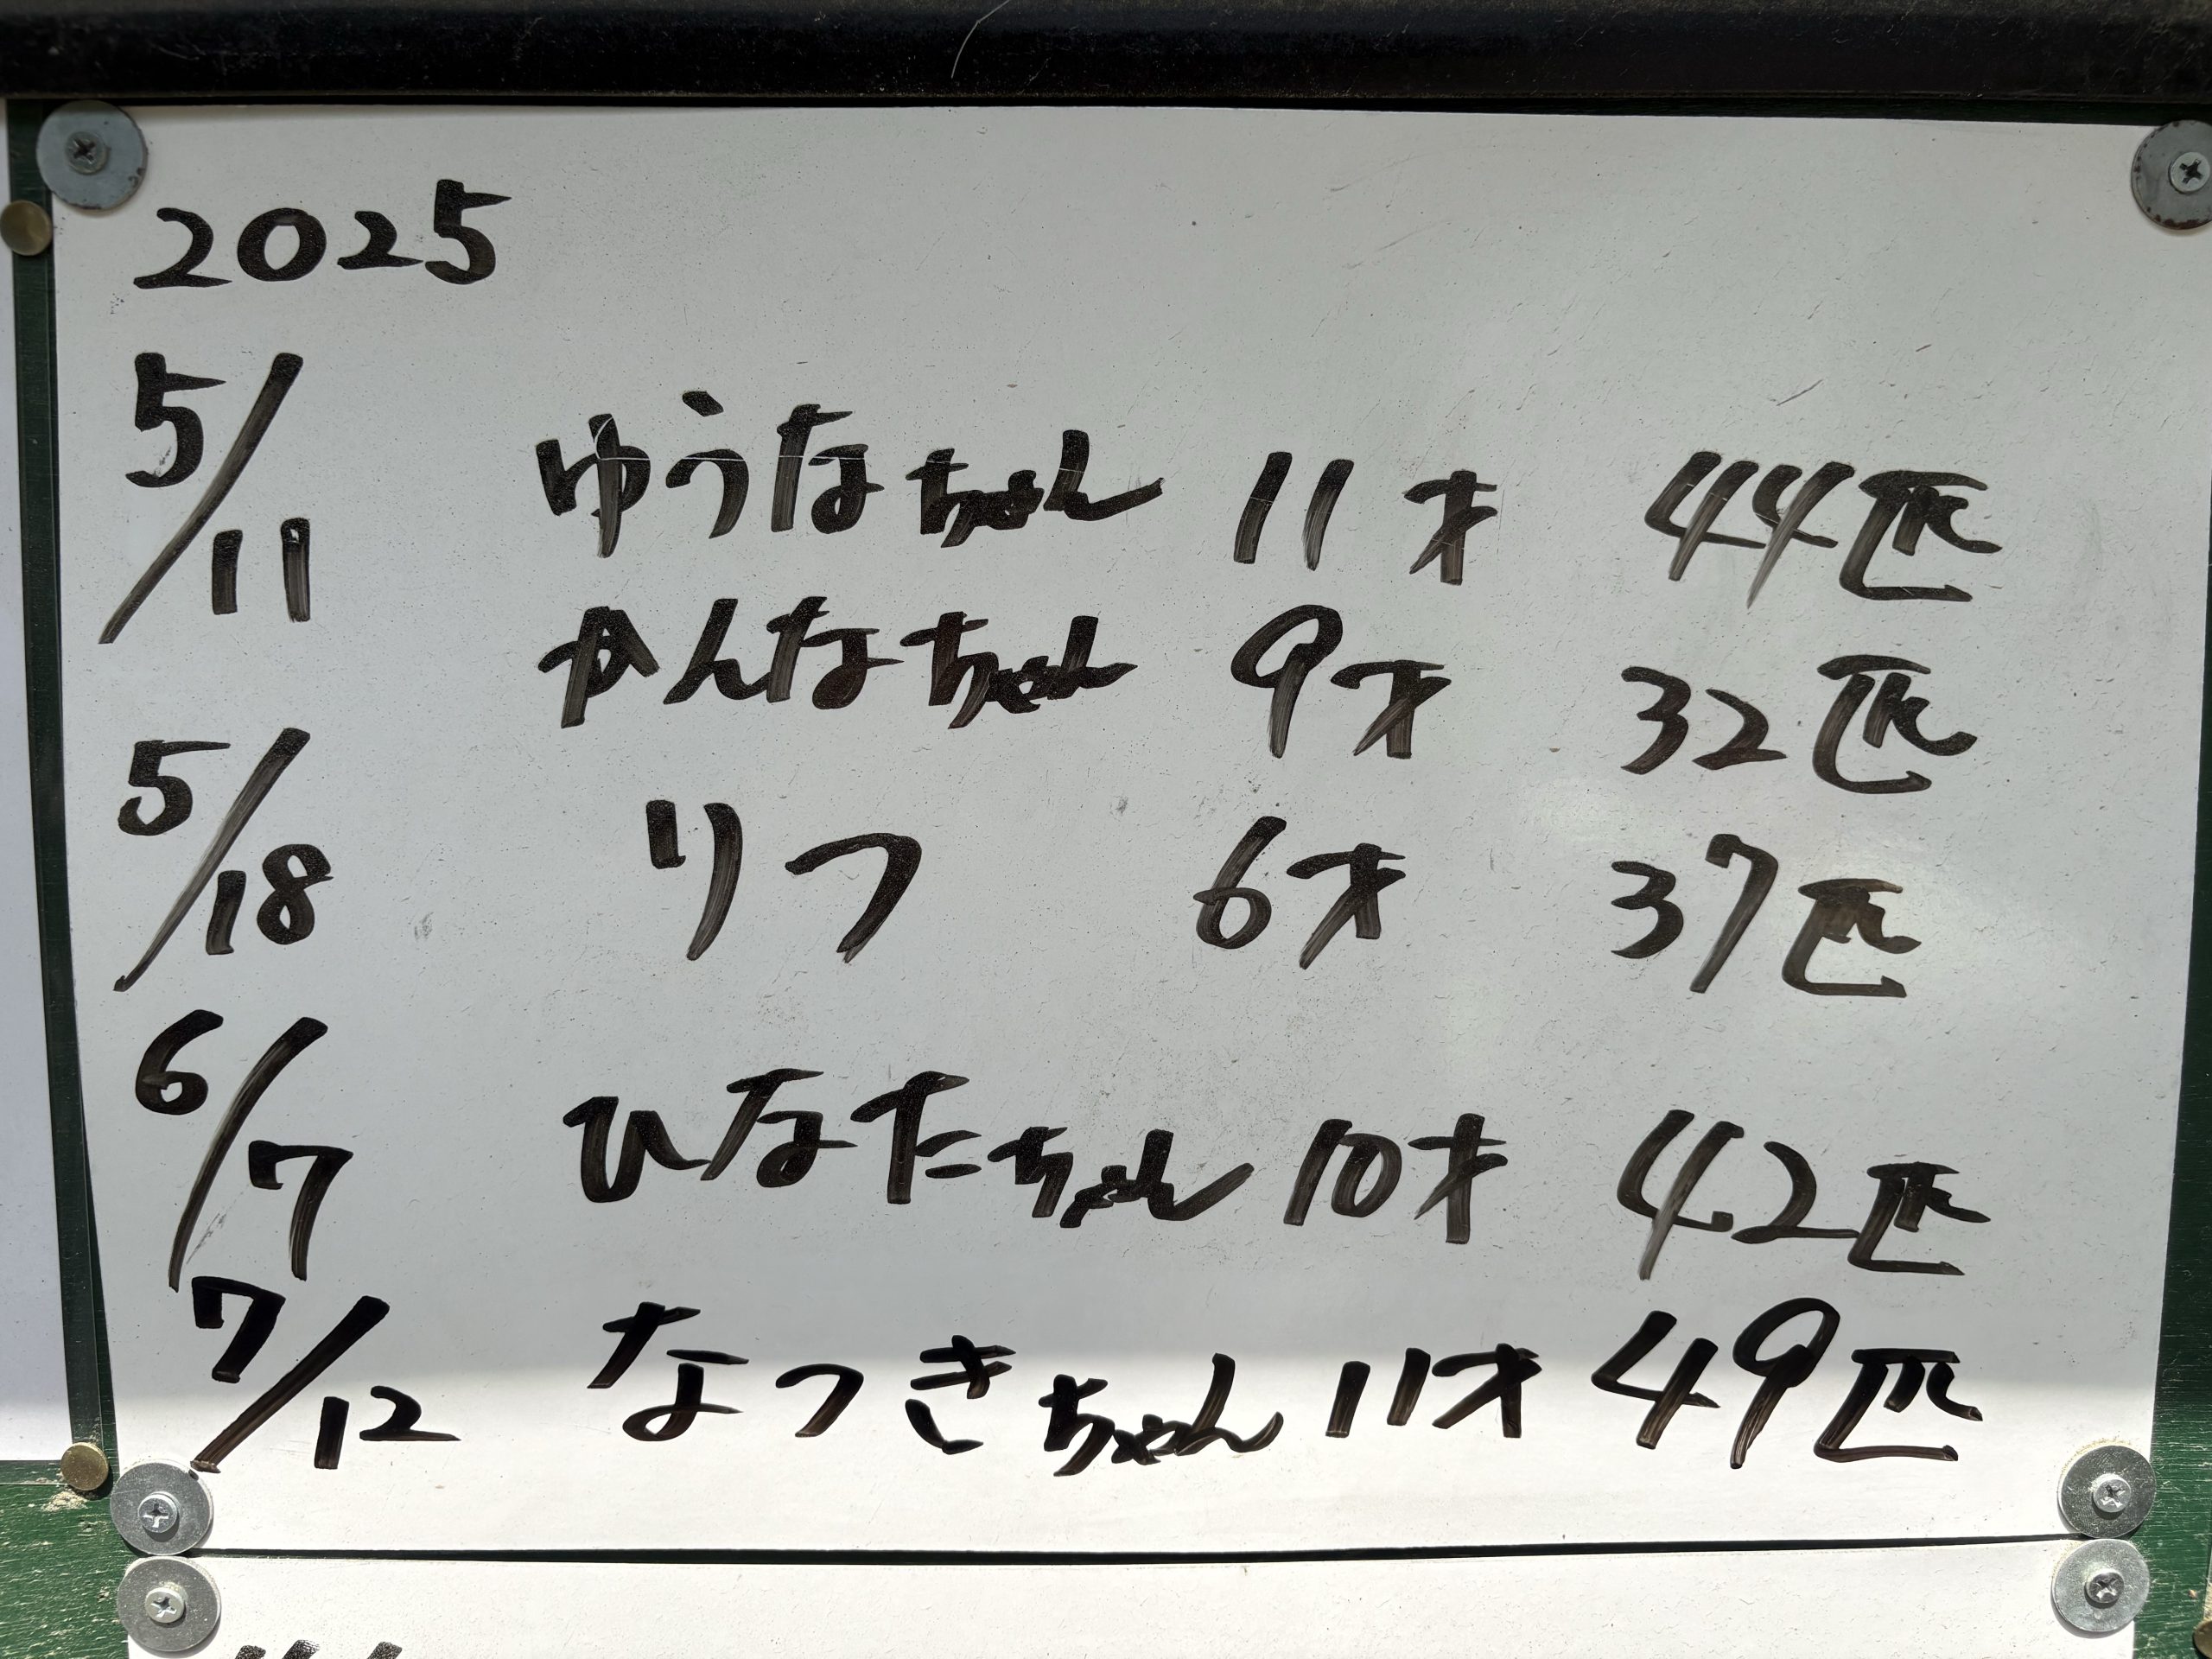 2025
5/11 ゆうなちゃん 11才 44匹
かんなちゃん 9才 32匹
5/18 りつ 6才 37匹
6/7 ひなたちゃん 10才 42匹
7/12 なつきちゃん 11才 49匹